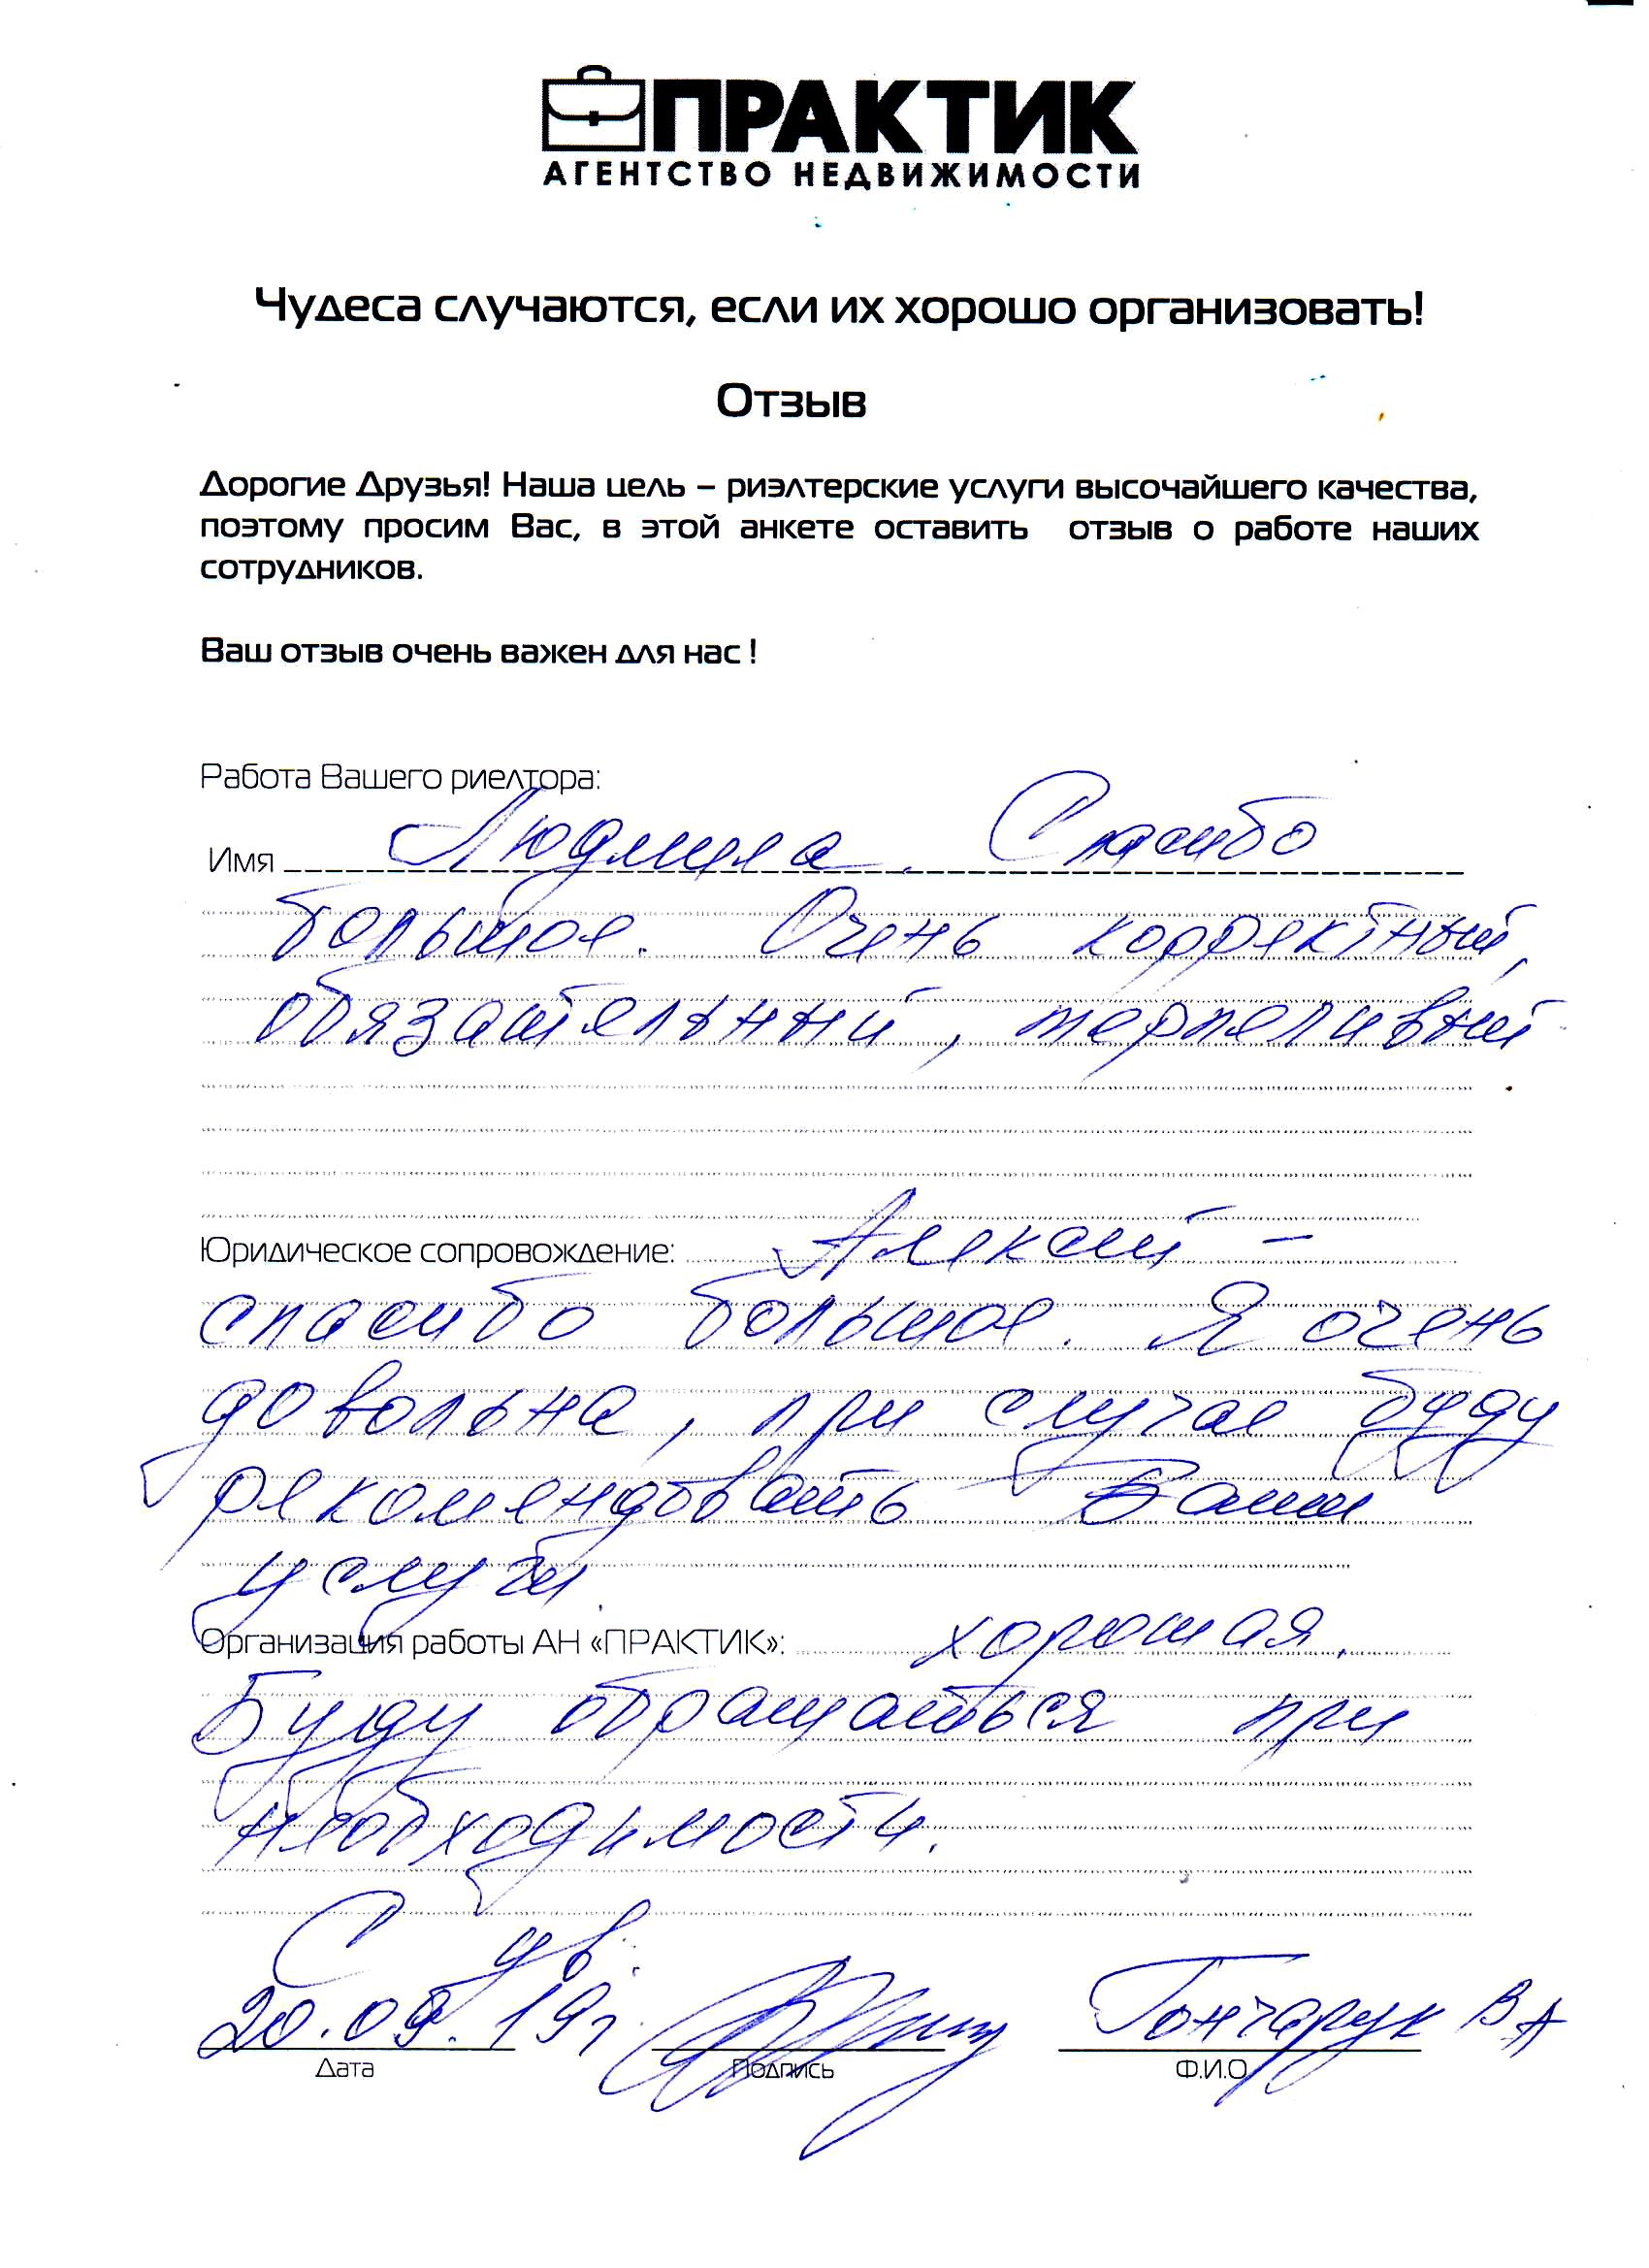 ПРАКТИК
АГЕНТСТВО НЕДВИЖИМОСТИ
Чудеса случаются, если их хорошо организовать!
Отзыв
Дорогие Друзья! Наша цель – риэлтерские услуги высочайшего качества,
поэтому просим Вас, в этой анкете оставить отзыв о работе наших
сотрудников.
Ваш отзыв очень важен для нас !
Работа Вашего риелтора:
Имя Людмила. Спасибо
большое. Очень корректный,
обязательный, терпеливый
Юридическое сопровождение: Алексей –
спасибо большое. Я очень
довольна, при случае буду
рекомендовать Ваши
услуги.
Организация работы АН «ПРАКТИК»: хорошая.
Буду обращаться при
необходимости.
С ув.
20.09.19г Гончарук В А
Дата Подпись Ф.И.О